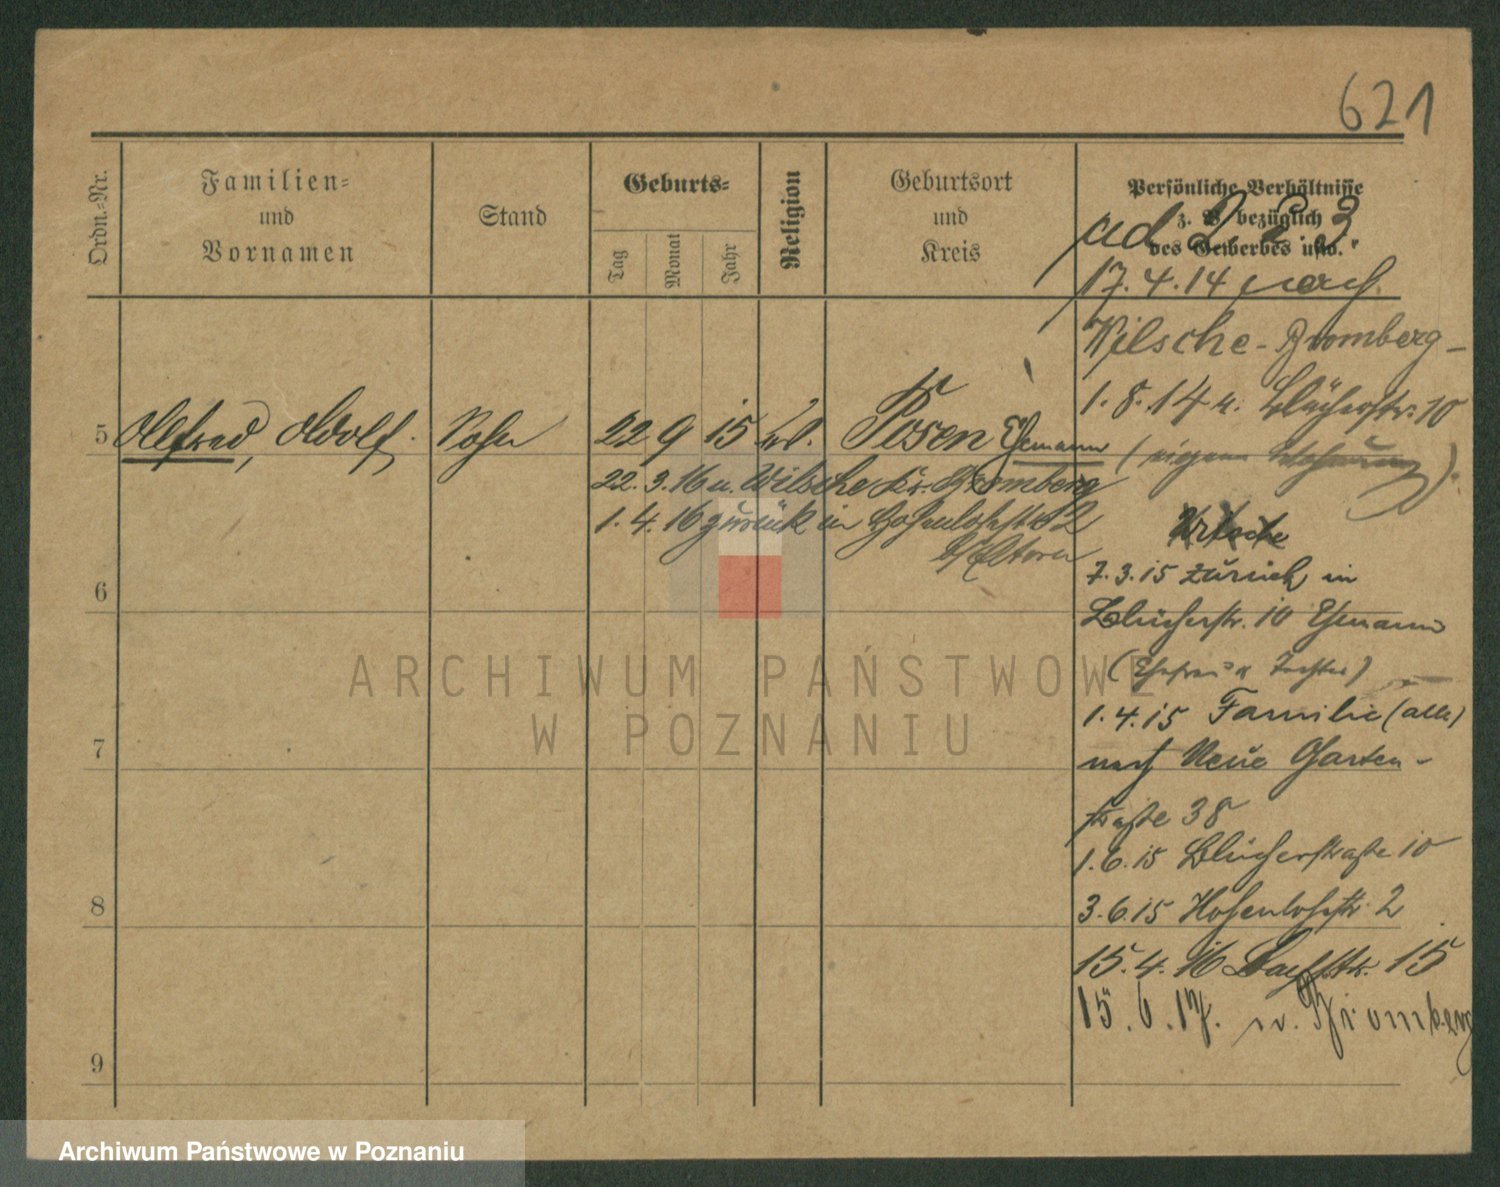 621
Ordn.-Nr.
Familien-
und
Vornamen
Stand
Geburts-
Tag
Monat
Jahr
Religion
Geburtsort
und
Kreis
Persönliche Verhältnisse
z. B. bezüglich
des Gewerbes usw.
ad 2 3
17.4.14 nach
Wilsche-Bromberg-
1.8.14 n. Blücherstr. 10
(eigene Wohnung)
5 Alfred, Adolf. Sohn 22 9 15 Posen Ehemann
22.3.16 n. Wilsche Kr. Bromberg
1.4.16 zurück in Hohenlohestr 2
b/ Eltern
Wilsche
7.3.15 zurück in
Blücherstr. 10 Ehemann
(Ehefrau u Tochter)
1.4.15 Familie (alle)
nach Neue Garten-
straße 38
1.6.15 Blücherstraße 10
3.6.15 Hohenlohestr. 2
15.4.16 15
15.6.17. n. Bromberg
6
7
8
9
ARCHIWUM PAŃSTWOWE
W POZNANIU
Archiwum Państwowe w Poznaniu